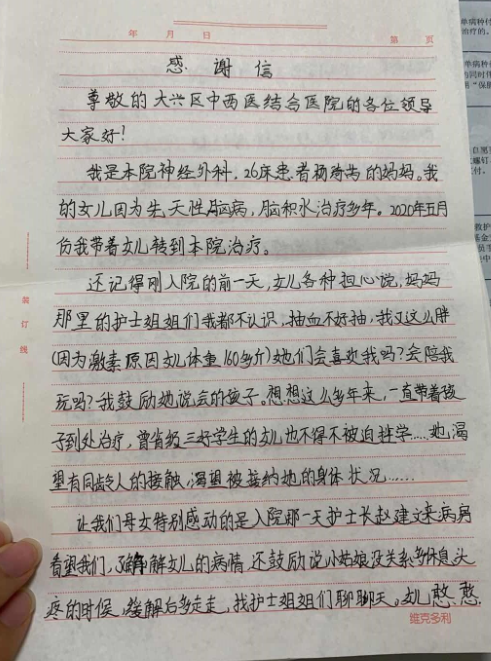 年 月 日 第 页
感谢信
尊敬的大兴区中西医结合医院的各位领导
大家好!
我是本院神经外科,26床患者杨 的妈妈。我
的女儿因为先天性脑病,脑积水治疗多年。2020年五月
份我带着女儿转到本院治疗。
还记得刚入院的前一天,女儿各种担心说,妈妈
那里的护士姐姐们我都不认识,抽血不好抽,我又这么胖
(因为激素原因女儿体重160多斤)她们会喜欢我吗?会陪我
玩吗?我鼓励她说会的孩子。想想这么多年来,一直带着孩
子到处治疗,曾省级三好学生的女儿也不得不被迫辍学……她,渴
望有同龄人的接触,渴望被接纳她的身体状况……
让我们母女特别感动的是入院那一天护士长赵建文来病房
看望我们,了解女儿的病情还鼓励说小姑娘没关系多休息,头
疼的时候,缓解后多走走,找护士姐姐们聊聊天。女儿憨憨
装订线
维克多利